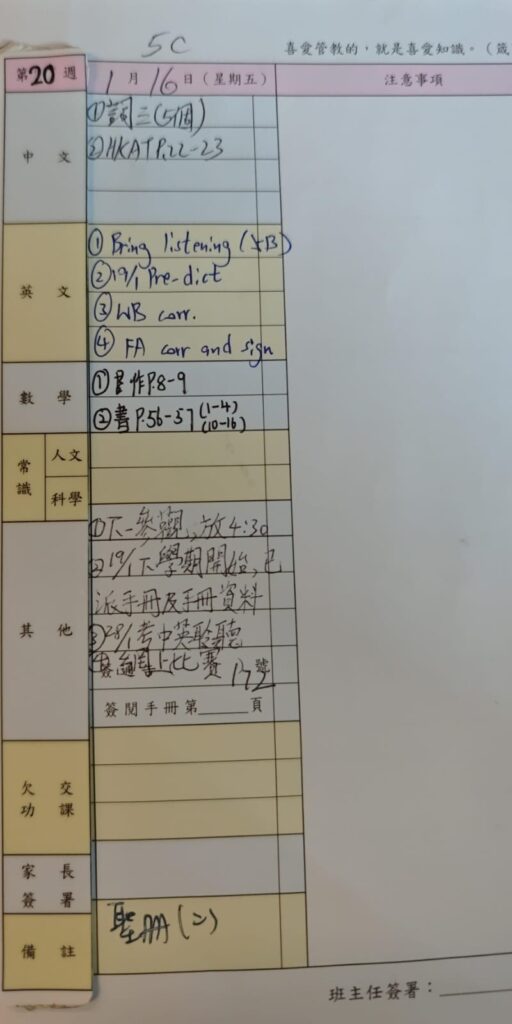 5C
喜愛管教的，就是喜愛知識。（箴
第20週 1月16日(星期五) 注意事項
中文
①詞三(5個)
②HKAT P.22-23
英文
① Bring listening
② 19/1 Pre-dict
③ WB corr.
④ FA corr and sign
數學
①
作P.8-9
②書P.56-57 (1-4)
(10-16)
常識 人文
科學
其他
①下一參觀,放4:30
②19/1下學期開始,已
派手冊及手冊資料
③28/1考中英聆聽
④簽網上比賽
號
簽閱手冊第____頁
欠交功課
家長簽署
備註
聖冊(二)
班主任簽署：